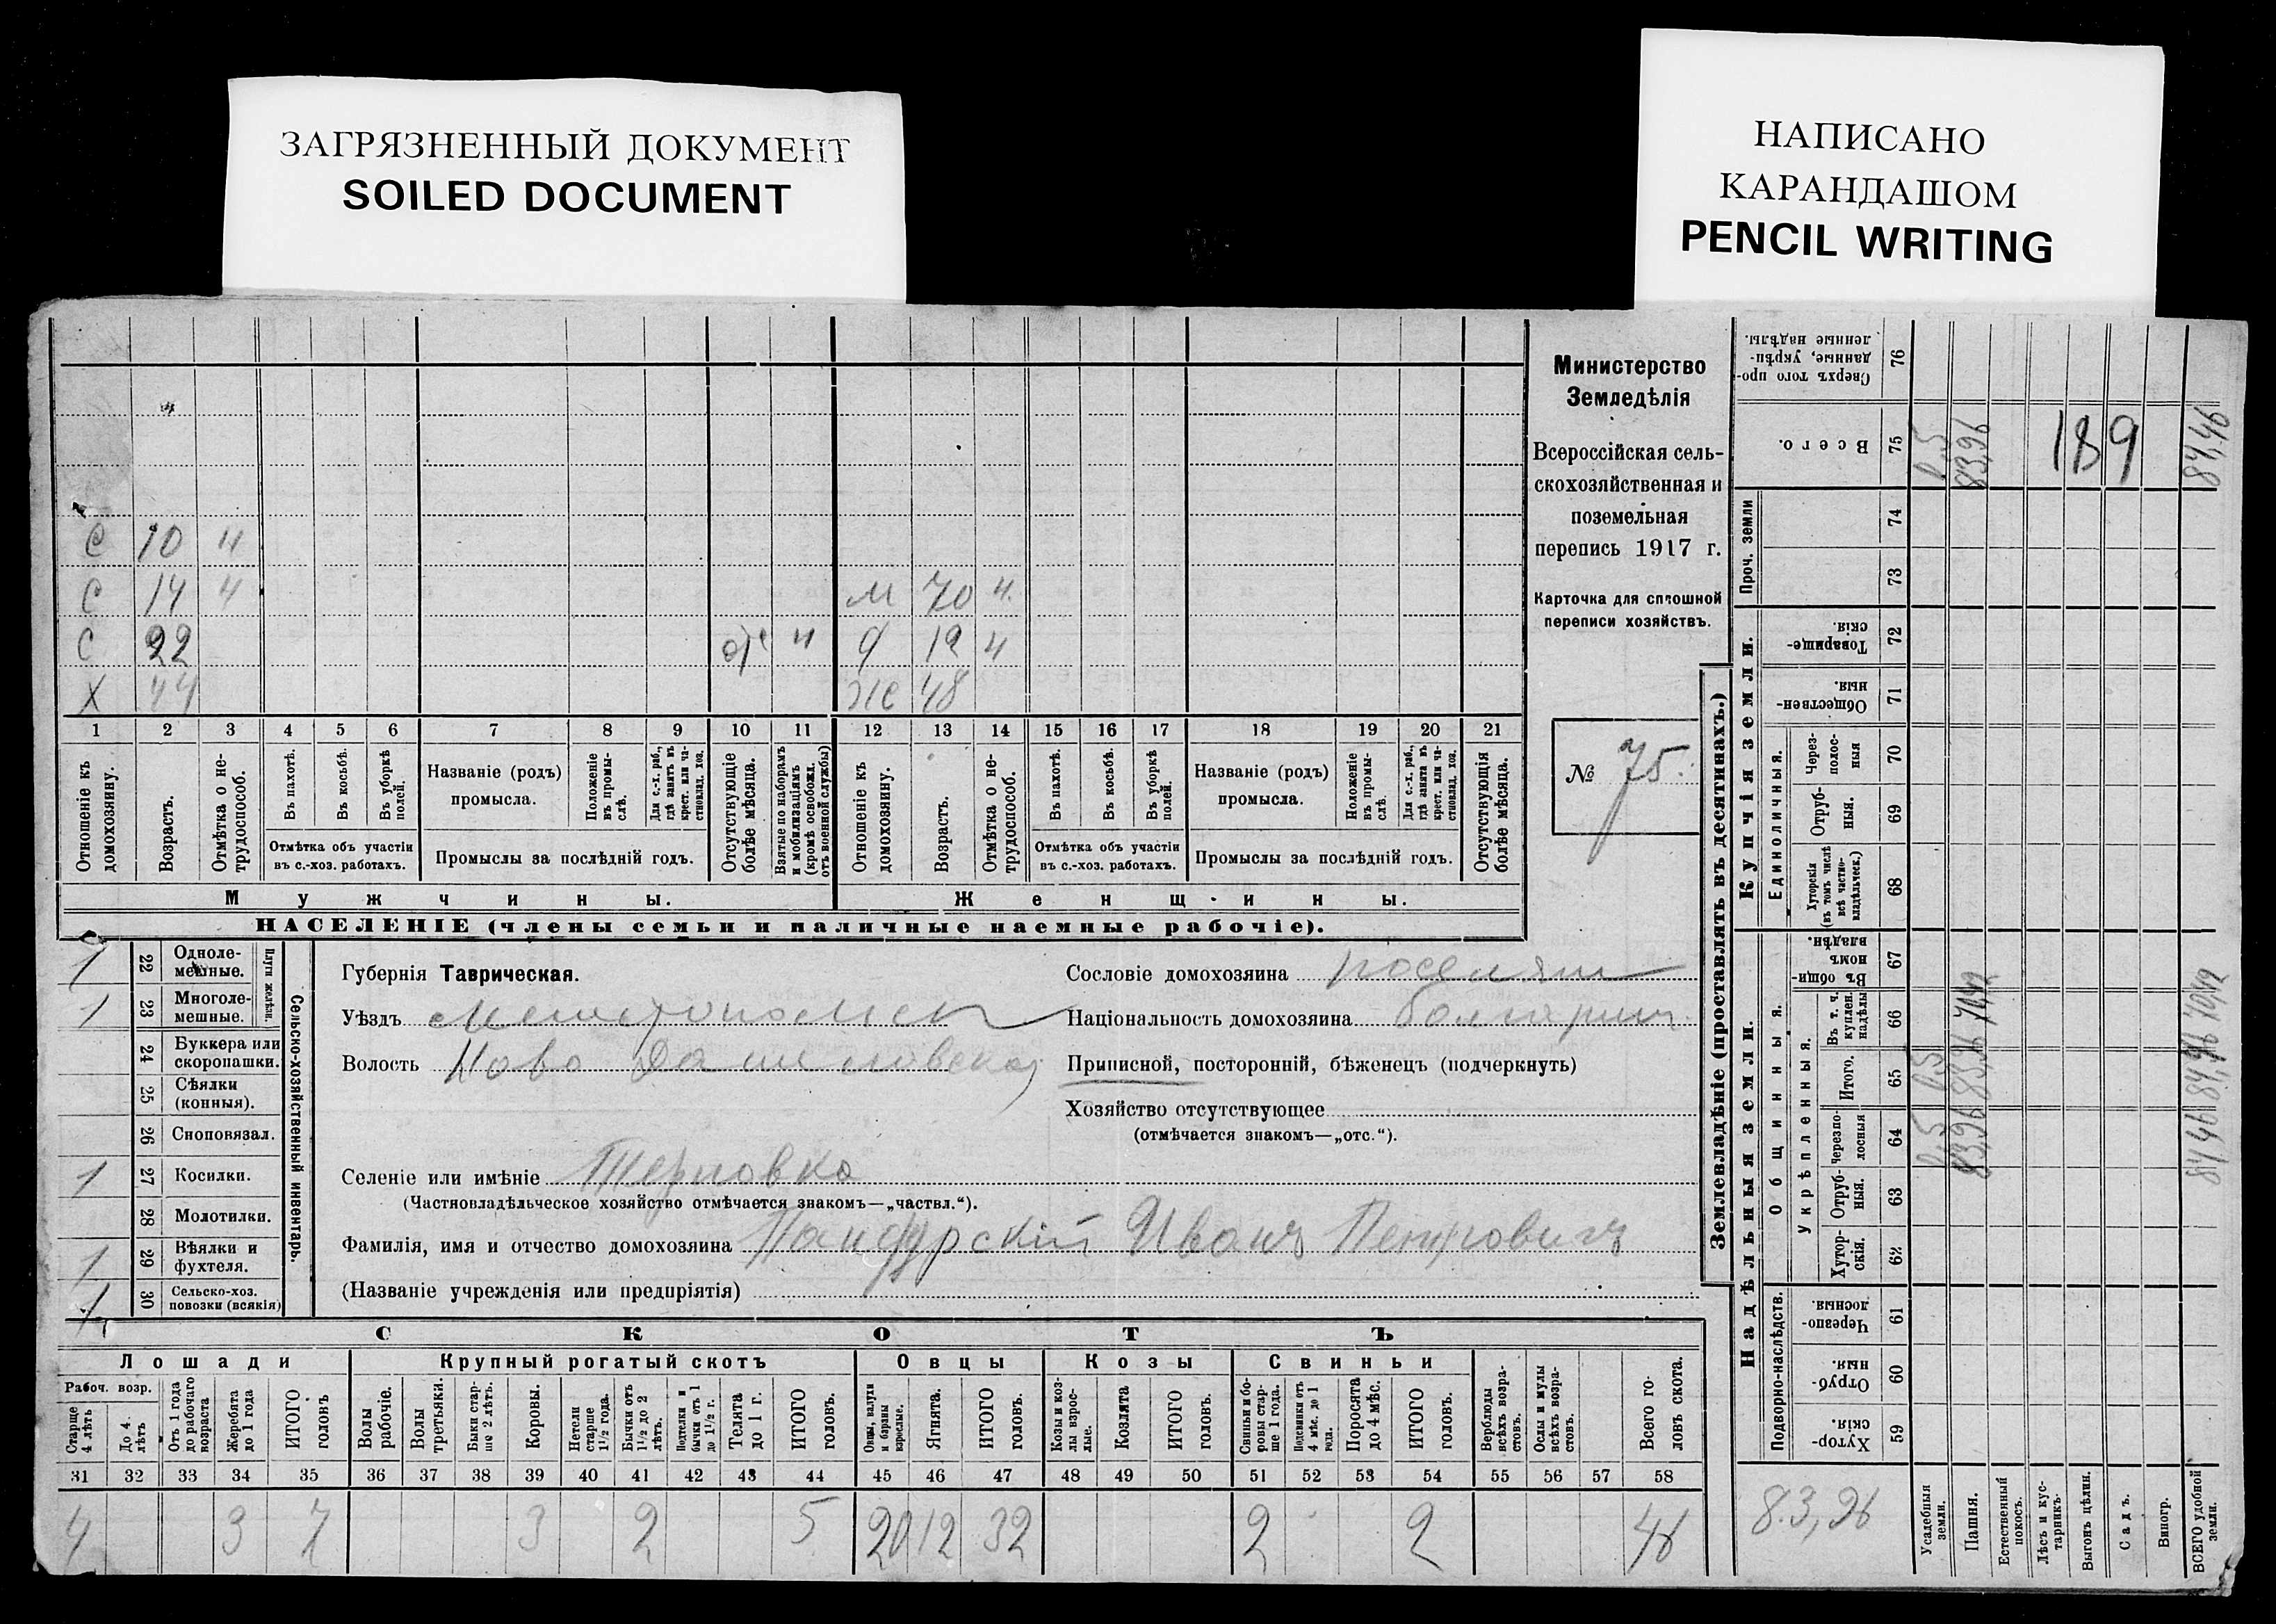 ЗАГРЯЗНЕННЫЙ ДОКУМЕНТ
SOILED DOCUMENT
НАПИСАНО
КАРАНДАШОМ
PENCIL WRITING
Министерство
Земледѣлія
Всероссійская сель-
скохозяйственная и
поземельная
перепись 1917 г.
Карточка для сплошной
переписи хозяйствъ.
№ 75.
С 10 н
С 14 ч М 70 ч.
С 22 от н Д 19 ч
Х 44 Же 48
1 2 3 4 5 6 7 8 9 10 11 12 13 14 15 16 17 18 19 20 21
Отношеніе къ домохозяину.
Возрастъ.
Отмѣтка о не-трудоспособ.
Въ пахотѣ.
Въ косьбѣ.
Въ уборкѣ полей.
Отмѣтка объ участіи
въ с.-хоз. работахъ.
Названіе (родъ)
промысла.
Положеніе въ промы-слѣ.
Для с.-х. раб., гдѣ занятъ въ крест. или ча-стновлад. хоз.
Промыслы за послѣдній годъ.
Отсутствующіе болѣе мѣсяца.
Взятые по наборамъ и мобилизаціямъ (кромѣ освобожд. отъ военной службы)
Отношеніе къ домохозяину.
Возрастъ.
Отмѣтка о не-трудоспособ.
Въ пахотѣ.
Въ косьбѣ.
Въ уборкѣ полей.
Отмѣтка объ участіи
въ с.-хоз. работахъ.
Названіе (родъ)
промысла.
Положеніе въ промы-слѣ.
Для с.-х. раб., гдѣ занята въ крест. или ча-стновлад. хоз.
Промыслы за послѣдній годъ.
Отсутствующія болѣе мѣсяца.
Мужчины. Женщины.
НАСЕЛЕНІЕ (члены семьи и наличные наемные рабочіе).
Сельско-хозяйственный инвентарь.
Плуги желѣзн.
1 22 Одноле-мешные.
1 23 Многоле-мешные.
24 Буккера или скоропашки.
25 Сѣялки (конныя).
26 Сноповязал.
1 27 Косилки.
28 Молотилки.
1 29 Вѣялки и фухтеля.
1 30 Сельско-хоз. повозки (всякія)
Губернія Таврическая.
Уѣздъ Мелитопольск
Волость Ново Даниловская
Селеніе или имѣніе Терновка
(Частновладѣльческое хозяйство отмѣчается знакомъ—„частвл.“).
Сословіе домохозяина поселян
Національность домохозяина болгарин
Приписной, посторонній, бѣженецъ (подчеркнуть)
Хозяйство отсутствующее
(отмѣчается знакомъ—„отс.“).
Фамилія, имя и отчество домохозяина Пандурскій Иванъ Петровичъ
(Названіе учрежденія или предпріятія)
СКОТЪ
Лошади Крупный рогатый скотъ Овцы Козы Свиньи
Рабоч. возр.
Старше 4 лѣтъ
До 4 лѣтъ
Отъ 1 года до рабочаго возраста
Жеребята до 1 года
ИТОГО головъ
Волы рабочіе.
Волы третьяки.
Быки стар-ше 2 лѣтъ.
Коровы.
Нетели старше 1½ года.
Бычки отъ 1½ до 2 лѣтъ.
Подтелки и бычки отъ 1 до 1½ г.
Телята до 1 г.
ИТОГО головъ.
Овцы, валухи и бараны взрослые.
Ягнята.
ИТОГО головъ.
Козы и коз-лы взрос-лые.
Козлята
ИТОГО головъ.
Свиньи и бо-ровы стар-ше 1 года.
Подсвинки отъ 4 мѣс. до 1 года.
Поросята до 4 мѣс.
ИТОГО головъ.
Верблюды всѣхъ возра-стовъ.
Ослы и мулы всѣхъ возра-стовъ.
Всего го-ловъ скота.
31 32 33 34 35 36 37 38 39 40 41 42 43 44 45 46 47 48 49 50 51 52 53 54 55 56 57 58
4 3 7 3 2 5 20 12 32 2 2 46
Землевладѣніе (проставлять въ десятинахъ.)
Купчія земли.
Надѣльныя земли.
Сверхъ того про-данные, укрѣп-ленные надѣлы. 76
Всего. 75 0,5 83,96 189 84,46
Проч. земли 74
73
Товарище-скія. 72
Обществен-ныя. 71
Единоличныя.
Через-полос-ныя 70
Отруб-ныя. 69
Хуторскія (въ томъ числѣ всѣ частно-владѣльческ.) 68
Общинныя.
Въ общи-номъ владѣн. 67
Укрѣпленныя.
Въ т. ч. куплен. надѣлы 66 70,42 70,42
Итого. 65 0,5 83,96 84,46
Черезпо-лосныя 64 0,5 83,96 84,46
Отруб-ныя. 63
Хутор-скія. 62
Подворно-наслѣдств.
Черезпо-лосныя. 61
Отруб-ныя. 60
Хутор-скія. 59
83,96
Усадебныя земли.
Пашня.
Естественный покосъ.
Лѣсъ и кус-тарникъ.
Выгонъ цѣлин.
Садъ.
Виногр.
ВСЕГО удобной земли.